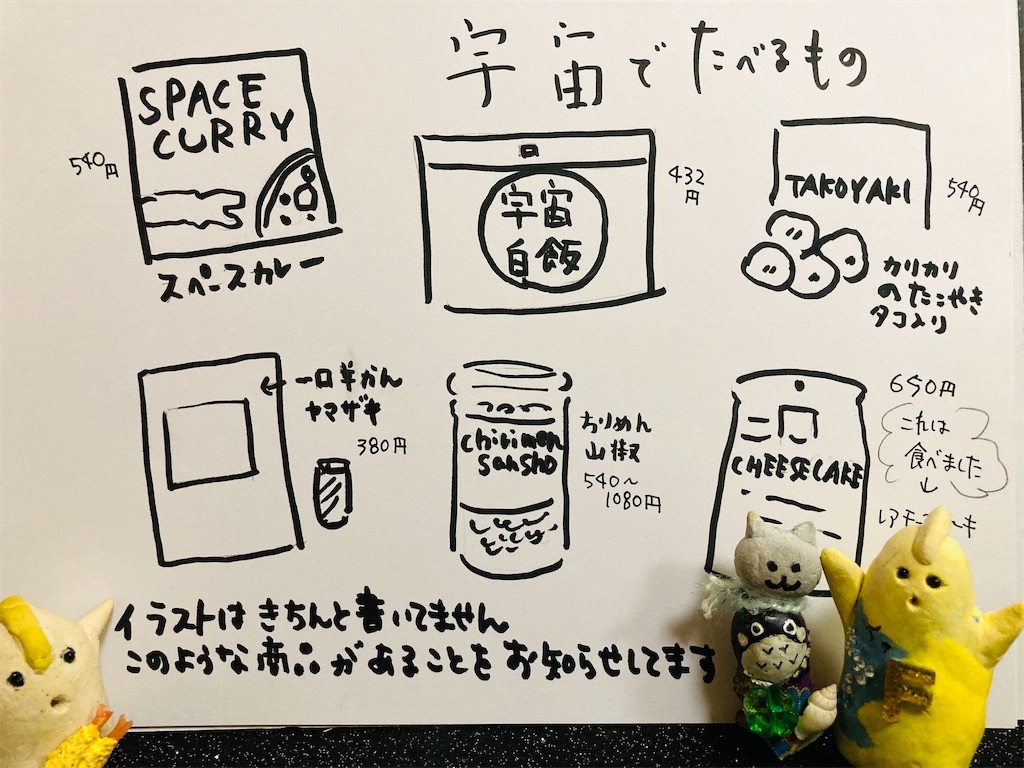 宇宙でたべるもの
SPACE
CURRY
540円
スペースカレー
宇宙
白飯
432円
TAKOYAKI
540円
カリカリ
のたこやき
タコ入り
一口羊かん
ヤマザキ
380円
chirimen
sansho
ちりめん
山椒
540〜
1080円
CHEESECAKE
650円
これは
食べました
イラストはきちんと書いてません
このような商品があることをお知らせしてます
F